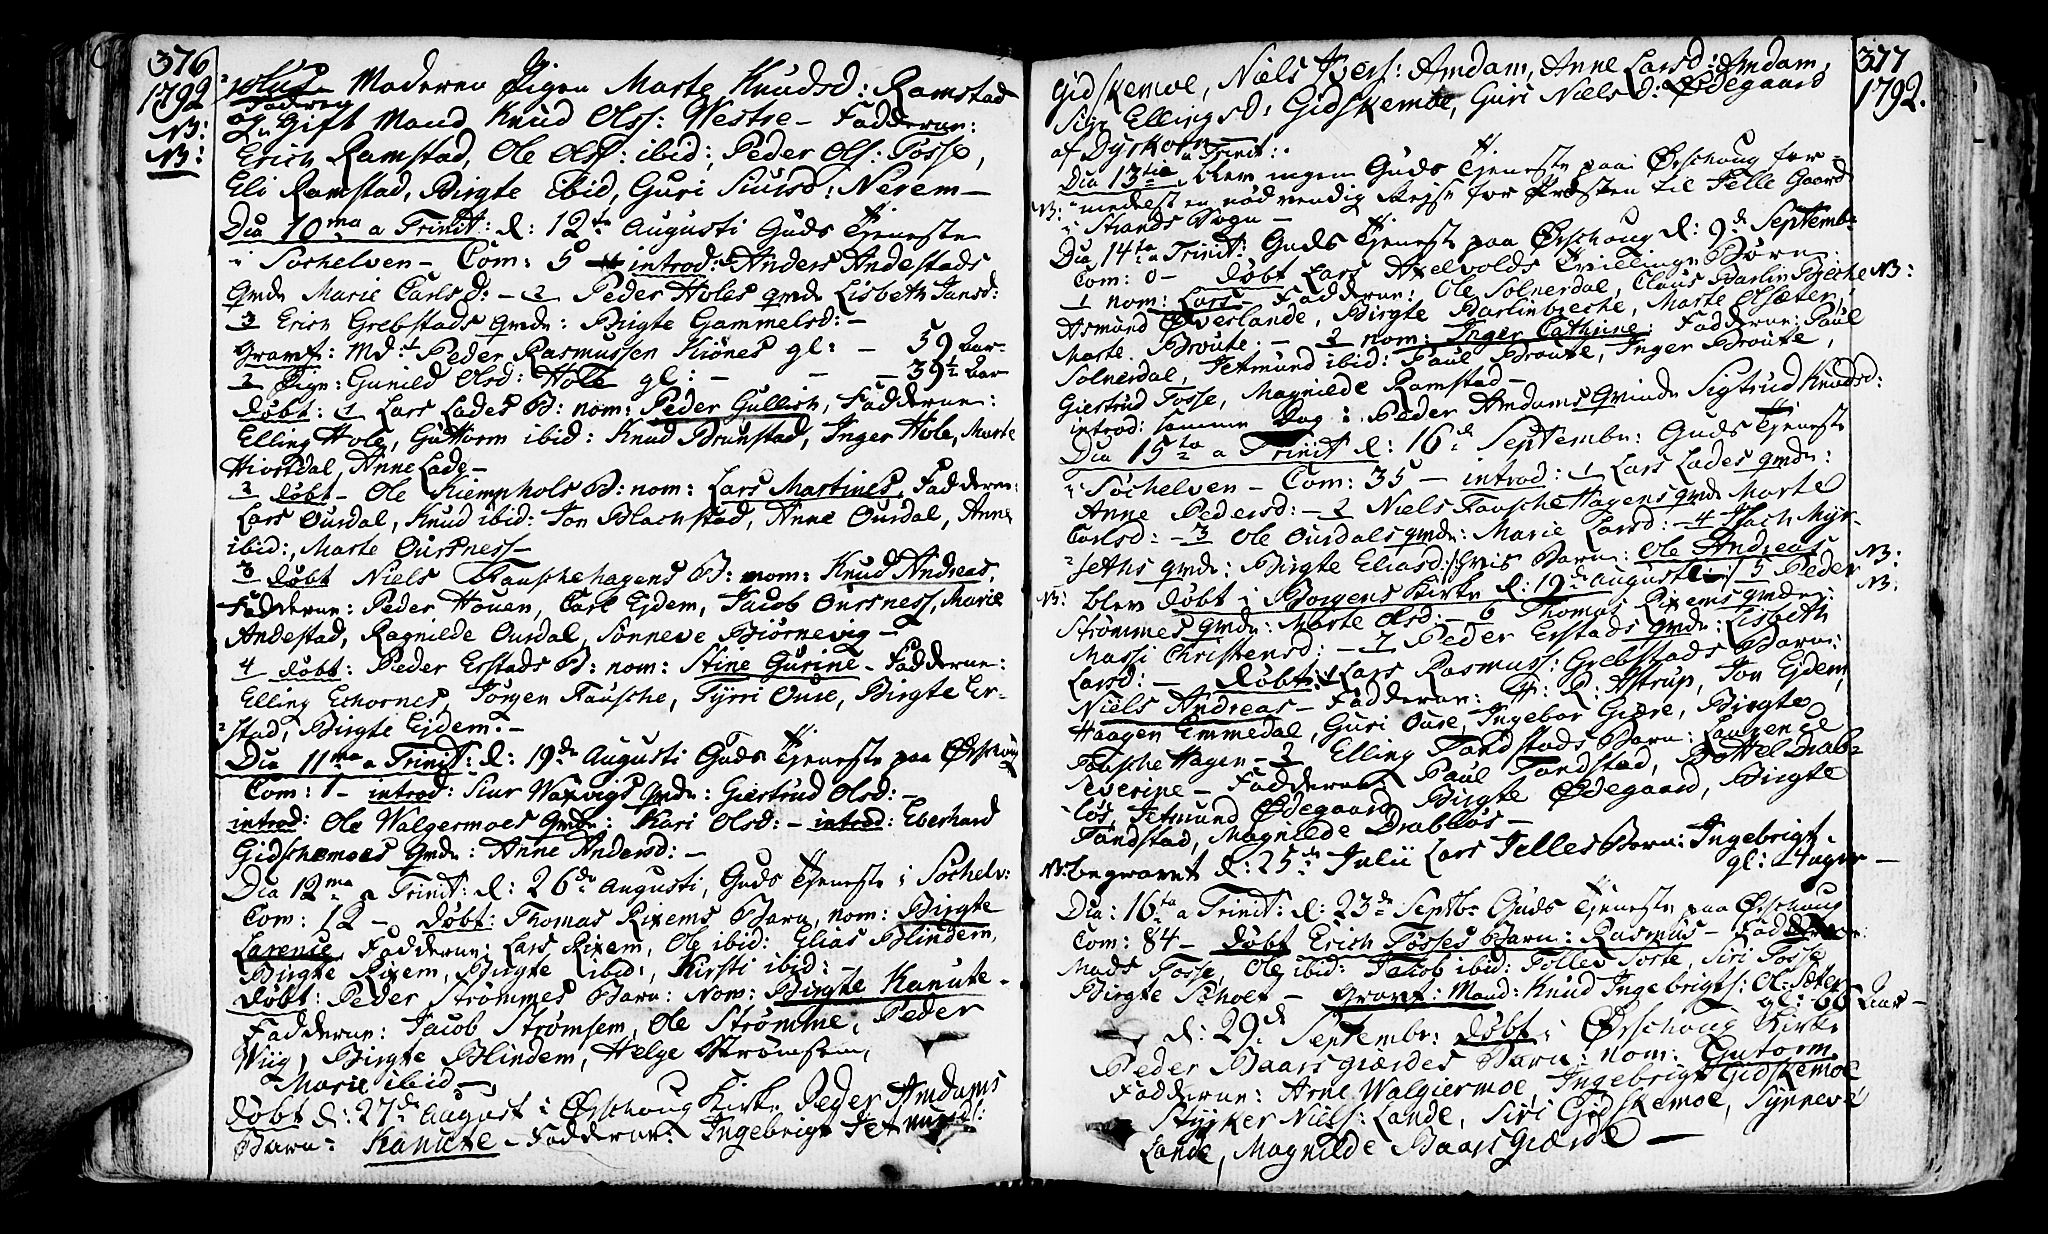 376
1792
NB:
NB:
Moderen Pigen Marte Knudsd: Ramstad
Faderen
og Gift Mand Knud Olss: Westre - Fadderne:
Erich Ramstad, Ole Ols: ibid:, Peder Ols: Tosse,
Eli Ramstad, Birgte ibid, Guri Siursd: Nerem -
Dca 10ma a Trinit: d: 12te Augusti Guds Tjeneste
i Søchelven - Com: 5 introd: Anders Andestads
Qvde Marie Carlsd: - 2 Peder Holes qvde Lisbeth Jansd:
3 Erich Grebstads qvde: Birgte Gammelsd: -
Gravf: Md: Peder Rasmussen Kiønes gl: - 59 Aar -
2 Pige: Gunild Olsd: Hole gl: - - - 39½ Aar
døbt: 1 Lars Lades B: nom: Peder Gullich, Fadderne:
Elling Hole, Guttorm ibid: Knud Brunstad, Inger Hole, Marte
Hiortdal, Anne Lade -
2 døbt - Ole Kiemphols B: nom: Lars Martines, Fadderne:
Lars Ourdal, Knud ibid: Jon Blachstad, Anne Ourdal, Anne
ibid:, Marte Oursness -
3 døbt Niels Fauschehagens B: nom: Knud Andreas,
Fadderne: Peder Houen, Carl Ejdem, Jacob Oursness, Marie
Andestad, Ragnilde Ourdal, Sønneve Biørnevig -
4 døbt: Peder Erstads B: nom: Stine Gurine - Fadderne:
Elling Echornes, Jørgen Fausche, Tyrri Oure, Birgte Er-
stad, Birgte Ejdem. -
Dca 11ma a Trinit: d: 19de Augusti Guds Tjeneste paa Ørschoug
Com: 1 - introd: Siur Waxvigs Qvde: Giertrud Olsd: -
introd: Ole Walgermoes Qvde: Kari Olsd: - introd: Eberhard
Gidschemoes Qvde: Anne Andersd: -
Dca 12ma a Trinit: d: 26de Augusti, Guds Tjeneste i Søchelv:
Com: 12 - Døbt: Thomas Rixems Barn, nom: Birgte
Larenie, Fadderne: Lars Rixem, Ole ibid: Elias Blindem,
Birgte Rixem, Birgte ibid:, Kirsti ibid: -
Døbt: Peder Strømmes Barn: Nom: Birgte Kanute -
Fadderne: Jacob Strømsem, Ole Strømme, Peder
Wiig, Birgte Blindem, Helge Strømsem,
Marie ibid -
døbt d: 27de August i Ørschoug Kirke Peder Amdams
Barn: Kanute - Fadderne: Ingebrigt Jetmunds:
377
1792.
Gidskemoe, Niels Ivers: Amdam, Anne Larsd: Amdam,
Siv Ellingsd: Gidskemoe, Guri Nielsd: Ødegaard
af Dyrkorn
Dca 13tia a Trinit: blev ingen Guds Tjeneste paa Ørschoug for-
NB: medelst en nødvendig Rejse for Præsten til Jelle Gaard
i Strands Sogn -
Dca 14ta a Trinit: Guds Tjeneste paa Ørschoug d: 9de Septembr
Com: 0 - Døbt Lars Axelvolds Tvillinge Børn:
1 nom: Lars - Fadderne: Ole Solnerdal, Claus Barlinbeche NB:
Asmund Øverlande, Birgte Barlinbeche, Marte Olsæter,
Marte Broute. - 2 nom: Inger Cathrine: Fadderne: Paul
Solnerdal, Jetmund ibid: Paul Broute, Inger Broute,
Giertrud Tosse, Magnilde Ramstad -
introd: samme Dag: Peder Amdams Qvinde Sigtrud Knudsd:
Dca 15ta a Trinit d: 16de Septembr: Guds Tjeneste
i Søchelven - Com: 35 - introd: 1 Lars Lades qvde:
Anne Pedersd: - 2 Niels Fausche Hagens qvde Marte
Carlsd: - 3 Ole Ourdals qvde: Marie Larsd: - 4 Isach Myr-
seths qvde: Birgte Eliasd: hvis Barn: Ole Andreas NB:
NB: blev døbt i Borgens Kirke d: 19de Augusti 5 Peder NB:
Strømmes qvde: Marte Olsd: - 6 Thomas Rixems qvde:
Massi Christensd: - 7 Peder Erstads qvde: Lisbeth
Larsd: - Døbt: 1 Lars Rasmuss: Grebstads Barn:
Niels Andreas - Fadderne: H: R: Astrup, Jon Ejdem,
Haagen Emmedal, Guri Oure, Ingebor Giære, Birgte
Fausche Hagen - 2 Elling Tandstads Barn: Laurence
Severine - Fadderne: Paul Tandstad, Bottel Drab-
løs, Jetmund Ødegaard, Birgte Ødegaard, Birgte
Tandstad, Magnilde Drabløs -
NB: begravet d: 25de Julii Lars Jelles Barn: Ingebrigt
gl: 4 uger -
Dca: 16ta a Trinit: d: 23de Septbr Guds Tjeneste paa Ørschoug
Com: 84 - Døbt Erich Tosses Barn: Rasmus - Fadderne:
Mads Tosse, Ole ibid: Jacob ibid: Tollev Torte, Siri Tosse
Birgte Scholt - Gravf: Mand: Knud Ingebrigts: Ol-sæter
gl: 66 Aar -
d: 29de Septembr: døbt i Ørschoug Kirke
Peder Baarsgiærdes Barn: nom: Gutorm
Fadderne: Arne Walgiermoe, Ingebrigt Gidskemoe
Stÿrker Niels: Lande, Siri Gidskemoe, Synneve
Lande, Magnilde Baarsgiærde -